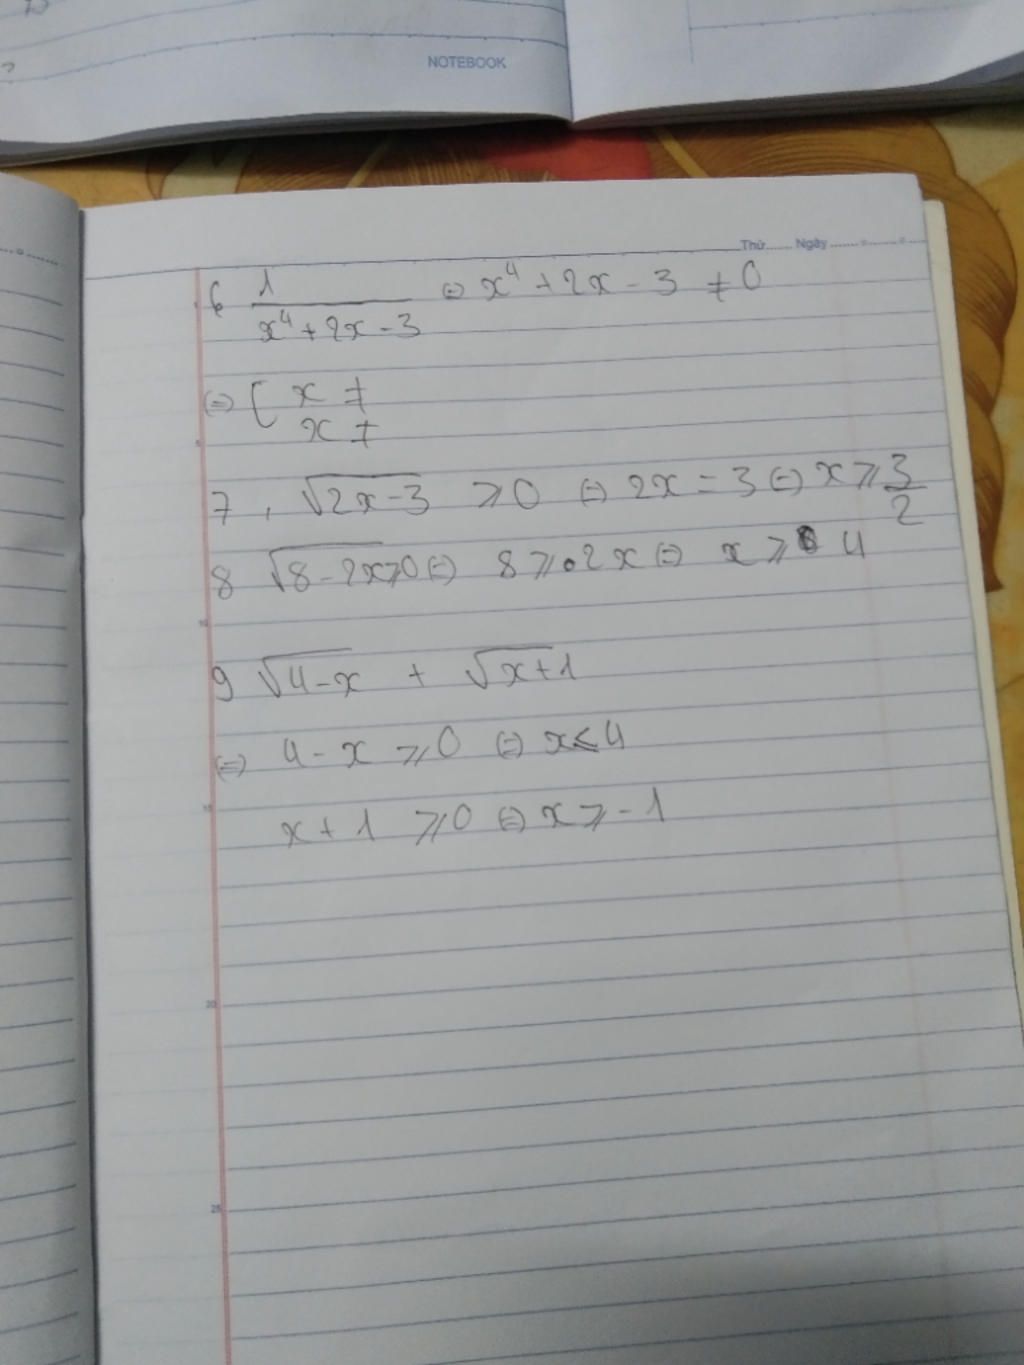 NOTEBOOK
Thứ...... Ngày
6 1/(x⁴+2x-3) ⇔ x⁴+2x-3 ≠ 0
⇔ [ x ≠
x ≠
7, √(2x-3) ⩾0 ⇔ 2x = 3 ⇔ x ⩾ 3/2
8 √(8-2x⩾0) ⇔ 8 ⩾ 2x ⇔ x ⩾ 4
9 √(4-x) + √(x+1)
⇔ 4-x ⩾0 ⇔ x⩽4
x+1 ⩾0 ⇔ x⩾-1
5
10
15
20
25